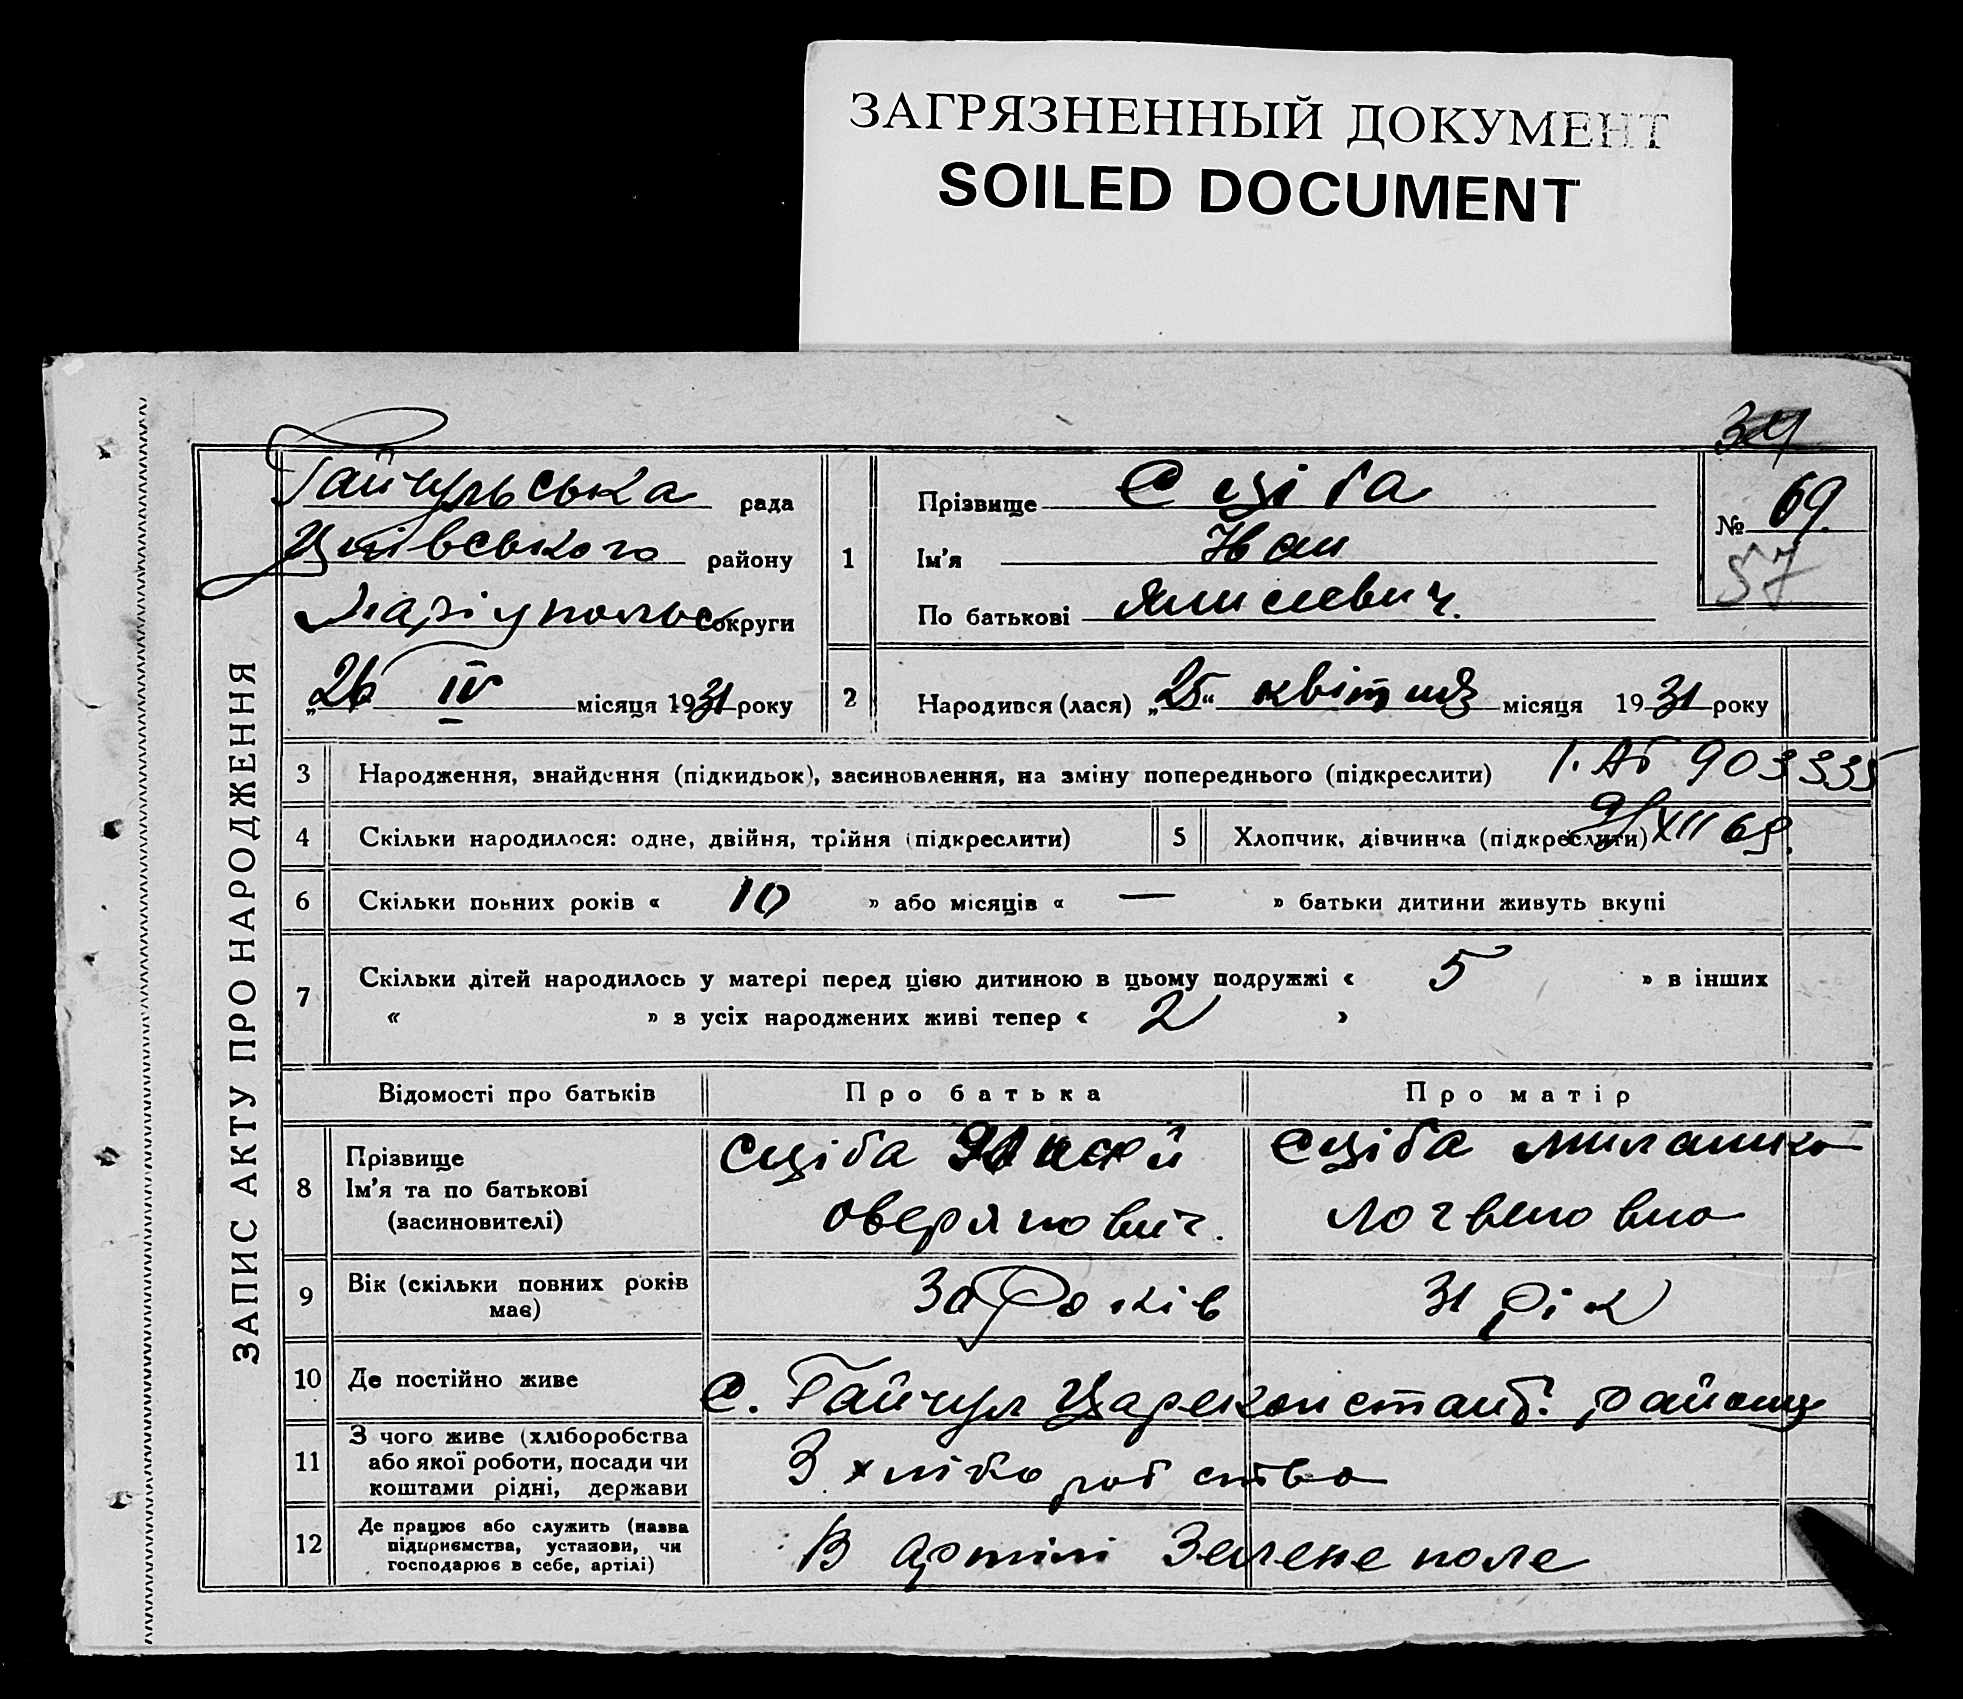 ЗАГРЯЗНЕННЫЙ ДОКУМЕНТ
SOILED DOCUMENT
34
ЗАПИС АКТУ ПРО НАРОДЖЕННЯ
Гайчульська рада
району
Маріупольс округи
„26 IV місяця 1931 року
1
Прізвище Сціба
Ім'я Іван
По батькові
№ 69.
57
2 Народився (лася) „25“ квітня місяця 1931 року
3 Народження, знайдення (підкидьок), засиновлення, на зміну попереднього (підкреслити) І. АБ 903335
4 Скільки народилося: одне, двійня, трійня (підкреслити)
5 Хлопчик, дівчинка (підкреслити) 9/XII 69.
6 Скільки повних років « 10 » або місяців « — » батьки дитини живуть вкупі
7 Скільки дітей народилось у матері перед цією дитиною в цьому подружжі « 5 » в інших
« » з усіх народжених живі тепер « 2 »
Відомості про батьків Про батька Про матір
8 Прізвище
Ім'я та по батькові
(засиновителі)
Сціба
Оверянович.
Сціба Миланка
Логвеновна
9 Вік (скільки повних років
має)
30 Років 31 рік
10 Де постійно живе С. Гайчул Цареконстант. району
11 З чого живе (хліборобства
або якої роботи, посади чи
коштами рідні, держави
З хліборобства
12 Де працює або служить (назва
підприємства, установи, чи
господарює в себе, артілі)
В артілі Зелене поле